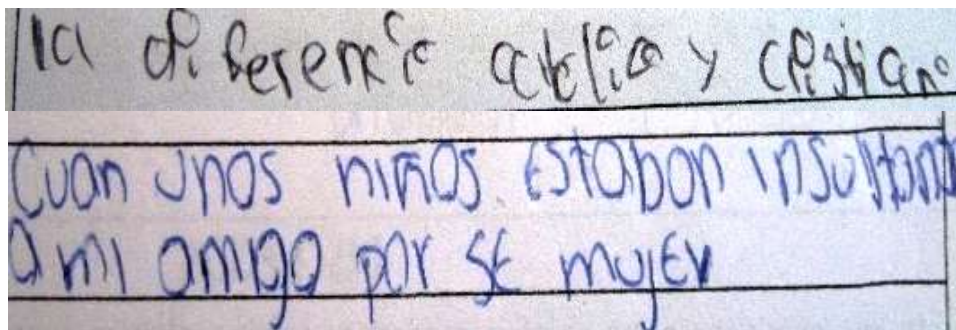 la diferencia catolica y cristiano
Cuan unos niños estaban insultand
a mi amiga por se mujer